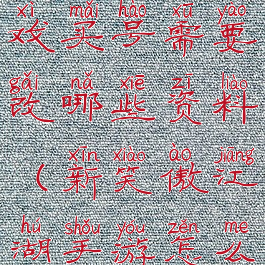 xì mǎi hào xū yào
戏买号需要
gǎi nǎ xiē zī liào
改哪些资料
xīn xiào ào jiāng
(新笑傲江
hú shǒu yóu zěn me
湖手游怎么